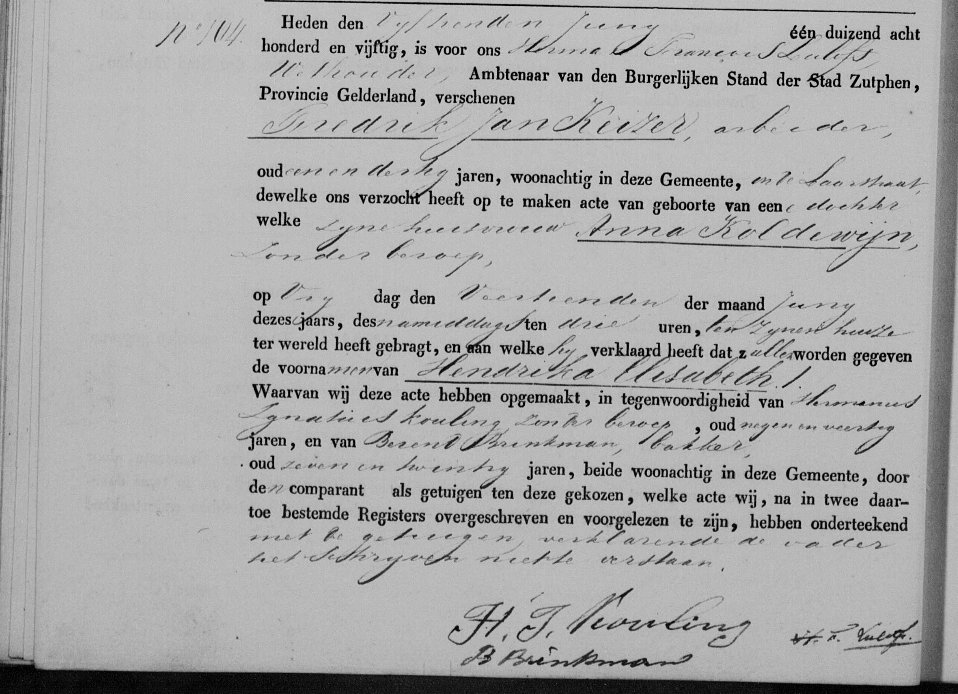 No 104. Heden den Vyftienden Juny één duizend acht
honderd en vijftig, is voor ons Herman François Lulofs,
Wethouder, Ambtenaar van den Burgerlijken Stand der Stad Zutphen,
Provincie Gelderland, verschenen
Fredrik Jan Keizer, arbeider,
oud een en dertig jaren, woonachtig in deze Gemeente, in de Laarstraat,
dewelke ons verzocht heeft op te maken acte van geboorte van eene dochter
welke zyne huisvrouw Anna Koldewijn,
zonder beroep,
op Vry dag den Veertienden der maand Juny
dezes jaars, des namiddags ten drie uren, ten zynen huize
ter wereld heeft gebragt, en aan welke hy verklaard heeft dat zullen worden gegeven
de voornamen van Hendrika Elisabeth.
Waarvan wij deze acte hebben opgemaakt, in tegenwoordigheid van Hermanus
Ignatius Kouling, zonder beroep, oud negen en veertig
jaren, en van Berend Brinkman, bakker,
oud zeven en twintig jaren, beide woonachtig in deze Gemeente, door
den comparant als getuigen ten deze gekozen, welke acte wij, na in twee daar-
toe bestemde Registers overgeschreven en voorgelezen te zijn, hebben onderteekend
met de getuigen, verklarende de vader
het schryven niet te verstaan.
H. J. Kouling
B Brinkman H. F. Lulofs.